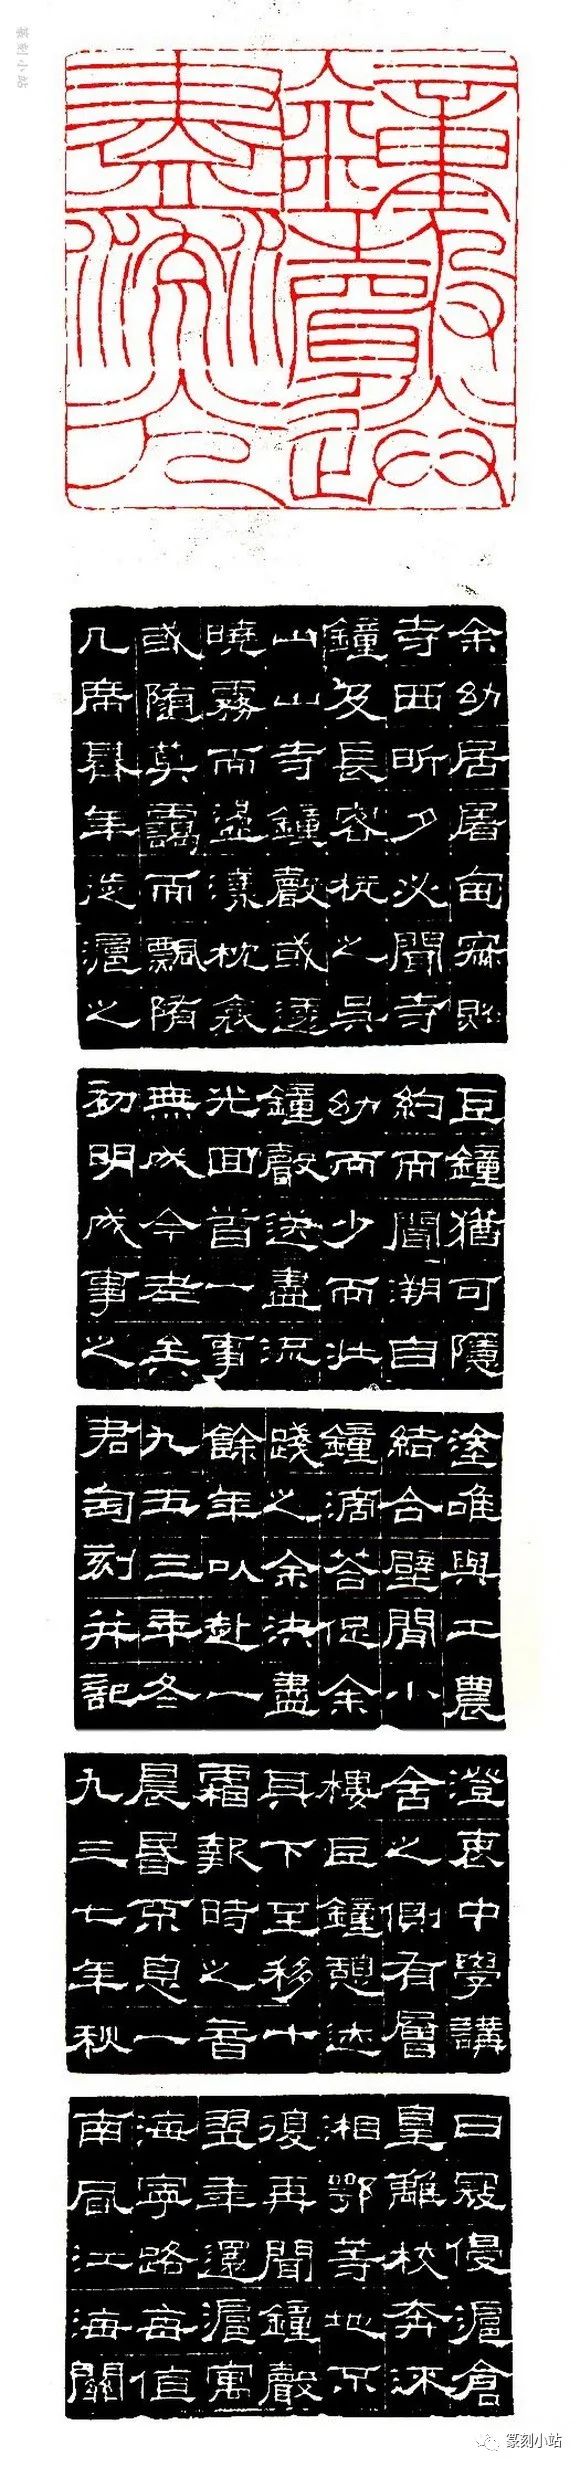 鐘聲送
盡流光
余幼居屠甸寂照
寺西昕夕必聞寺
鐘及長客杭之吳
山山寺鐘聲或透
曉霧而盪漾枕衾
或隨莫靄而飄墮
几席朞年徙滬之
巨鐘猶可隱
約而聞溯自
幼而少而壯
鐘聲送盡流
光回首一事
無成今老矣
初明成事之
塗唯與工農
結合壁間小
鐘滴答促余
踐之余決盡
餘年以赴一
九五三年冬
君匋刻并記
澄衷中學講
舍之側有層
樓巨鐘憩迹
其下至移十
霜報時之音
晨昬息一
九三七年秋
日寇侵滬倉
皇離校奔
湘鄂等地不
復再聞鐘聲
翌年還滬寓
海寧路每值
南風江海關
篆刻小站
篆刻小站